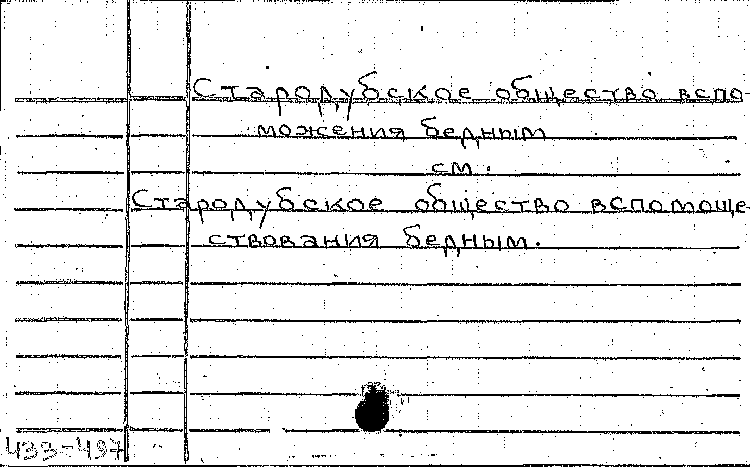 Стародубское общество вспо-
можения бедным
см.
Стародубское общество вспомоще-
ствования бедным.
433-497